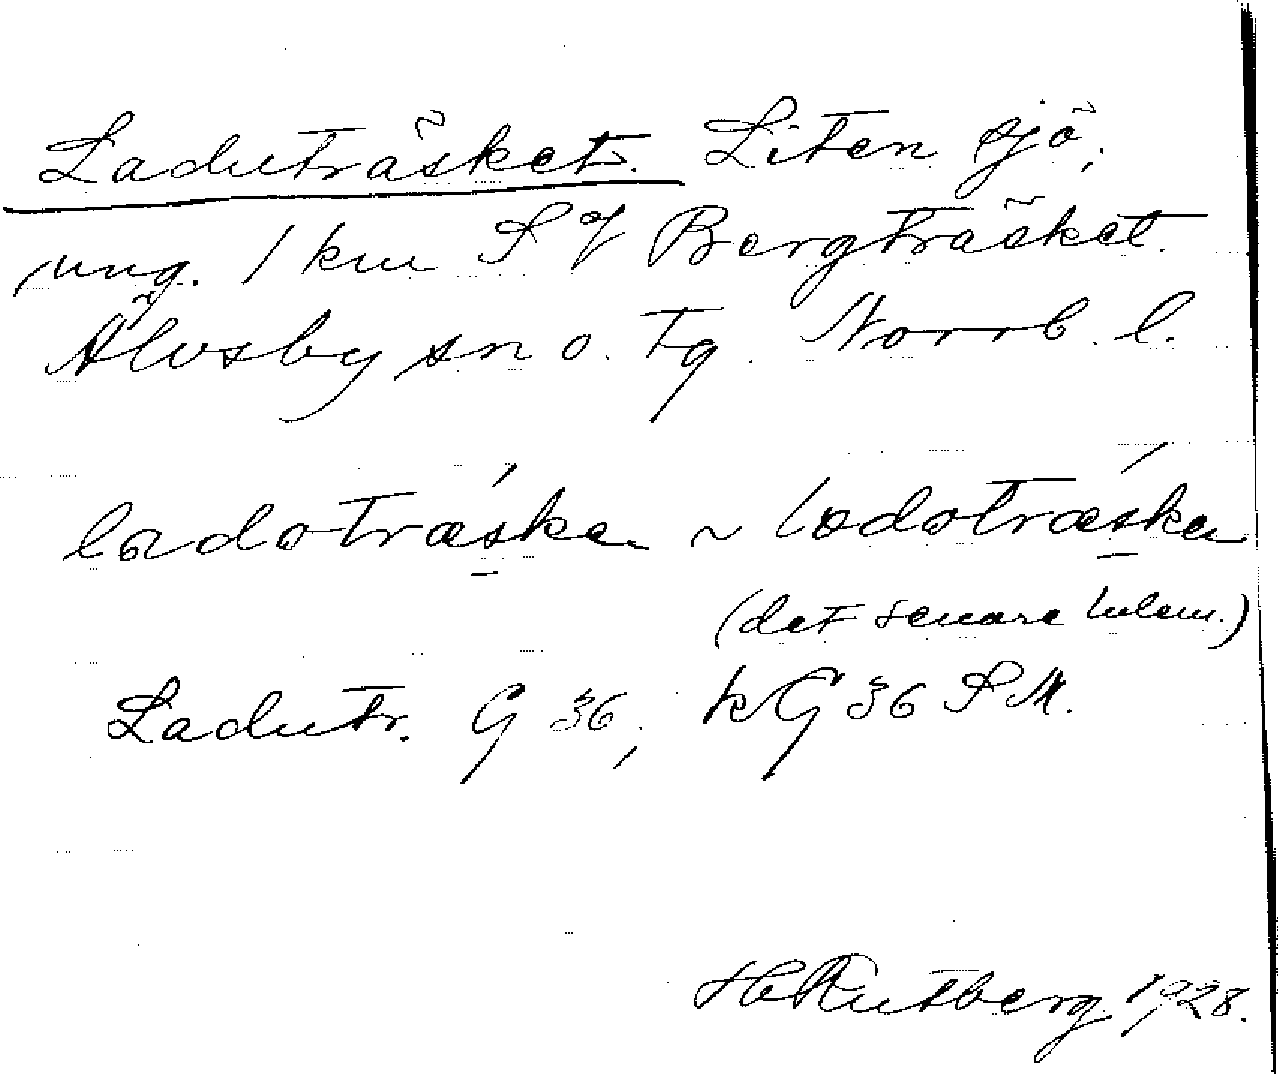 Laduträsket. Liten sjö,
ung. 1 km S of Bergträsket.
Älvsby sn o. tg. Norrb. l.
ladoträska ~ lodoträska
(det senare lulem.)
Ladutr. G 36, kG 36 S M.
H. Rutberg 1928.